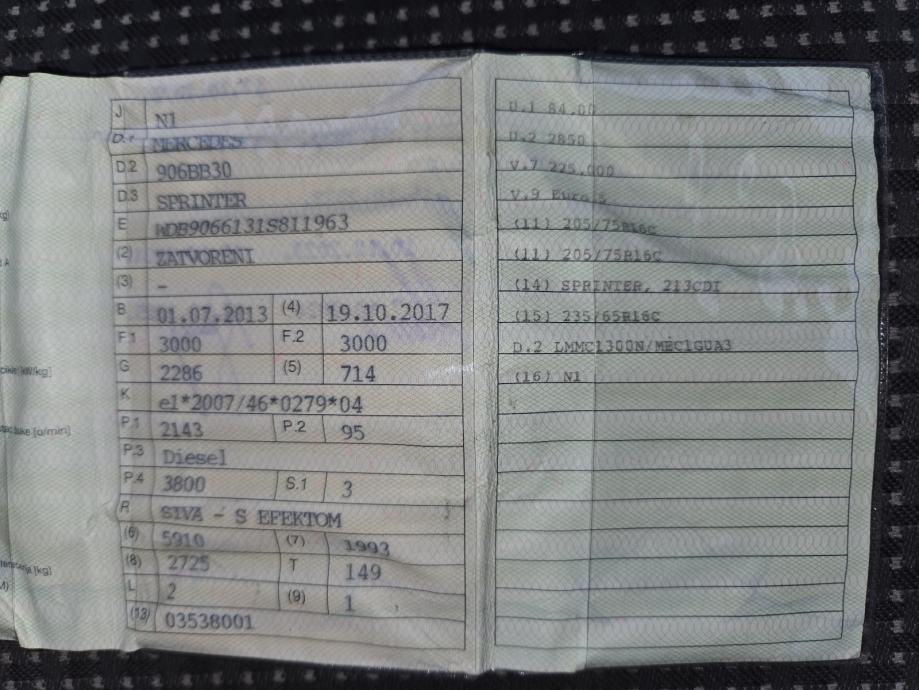 J N1
D.1 MERCEDES
D.2 906BB30
D.3 SPRINTER
E WDB9066131S811963
(2) ZATVORENI
(3) -
B 01.07.2013 (4) 19.10.2017
F.1 3000 F.2 3000
G 2286 (5) 714
K e1*2007/46*0279*04
P.1 2143 P.2 95
P.3 Diesel
P.4 3800 S.1 3
R SIVA - S EFEKTOM
(6) 5910 (7) 1993
(8) 2725 T 149
L 2 (9) 1
(13) 03538001
U.1 84.00
U.2 2850
V.7 225.000
V.9
(11) 205/75R16C
(11) 205/75R16C
(14) SPRINTER, 213CDI
(15) 235/65R16C
D.2 LMMC1300N/MEC1GUA3
(16) N1
[o/min]
[kg]